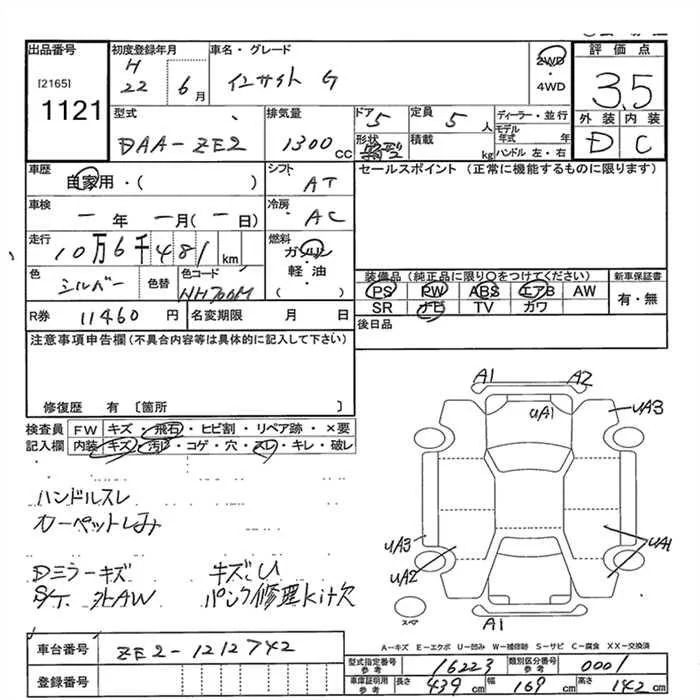 出品番号
[2165]
1121
初度登録年月
H 22 6月
車名・グレード
インサイト G
2WD
・4WD
評価点
3.5
外装 内装
D C
型式
DAA-ZE2
排気量
1300 cc
ドア 5
形状
定員 5人
積載 kg
ディーラー・並行
モデル年式 年
ハンドル 左・右
車歴
自家用・( )
シフト AT
セールスポイント (正常に機能するものに限ります)
車検
一年 一月(一日)
冷房 AC
走行
10万6千481km
燃料
ガソリン
軽・油
( )
色 シルバー 色替 色コード NH700M
装備品(純正品に限り○をつけてください) 新車保証書
PS PW ABS エアB AW 有・無
SR ナビ TV カワ
R券 11460円 名変期限 月 日
後日品
注意事項申告欄(不具合内容等は具体的に記入して下さい)
修復歴 有 〔箇所 〕
検査員記入欄
FW キズ・飛石・ヒビ割・リペア跡・×要
内装 キズ・汚れ・コゲ・穴・スレ・キレ・破レ
ハンドルスレ
カーペットしみ
Dミラーキズ キズU
S/T、外AW パンク修理kit欠
A1 A2
UA1 UA3
UA3 UA1
UA2
スペア
A1
A-キズ E-エクボ U-凹み W-補修跡 S-サビ C-腐食 XX-交換済
車台番号 ZE2-1212742
登録番号
型式指定番号参考 16223 類別区分番号参考 0001
車庫証明用参考 長さ 439cm 幅 169cm 高さ 142cm